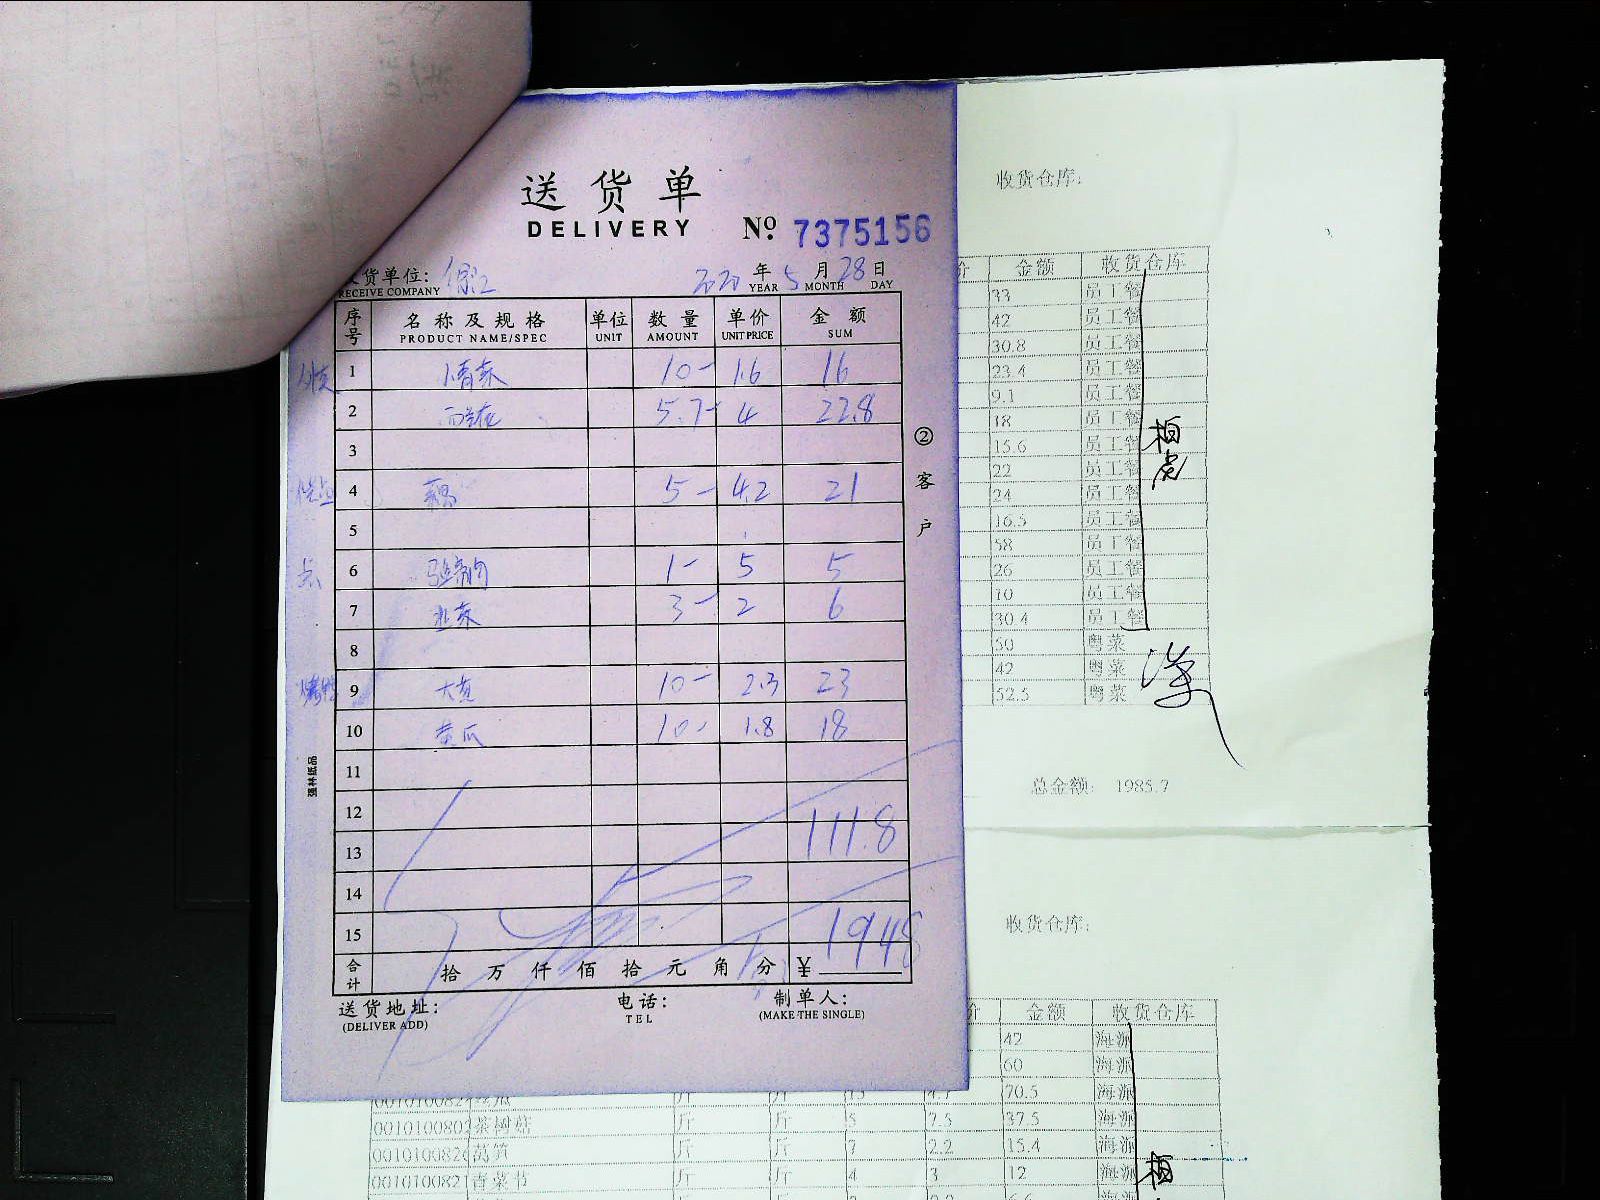 送货单
DELIVERY
№ 7375156
货单位:
RECEIVE COMPANY
2020 年 5 月 28 日
YEAR MONTH DAY
序号 名称及规格 单位 数量 单价 金额
PRODUCT NAME/SPEC UNIT AMOUNT UNIT PRICE SUM
1 小青菜 10- 1.6 16
2 西兰花 5.7- 4 22.8
3
4 藕 5- 4.2 21
5
6 1- 5 5
7 韭菜 3- 2 6
8
9 大 10- 2.3 23
10 黄瓜 10- 1.8 18
11
12
13 111.8
14
15 1948
合计 拾 万 仟 佰 拾 元 角 分 ¥
送货地址: 电话: 制单人:
(DELIVER ADD) TEL (MAKE THE SINGLE)
②客户
强林纸品
收货仓库:
价 金额 收货仓库
33 员工餐
42 员工餐
30.8 员工餐
23.4 员工餐
9.1 员工餐
18 员工餐
15.6 员工餐
22 员工餐
24 员工餐
16.5 员工餐
58 员工餐
26 员工餐
10 员工餐
30.4 员工餐
50 粤菜
42 粤菜
52.5 粤菜
总金额: 1985.7
收货仓库:
价 金额 收货仓库
42 海派
60 海派
70.5 海派
0010100802 茶树菇 斤 斤 5 7.5 37.5 海派
001010082 莴笋 斤 斤 7 2.2 15.4 海派
0010100821 青菜节 斤 斤 4 3 12 海派